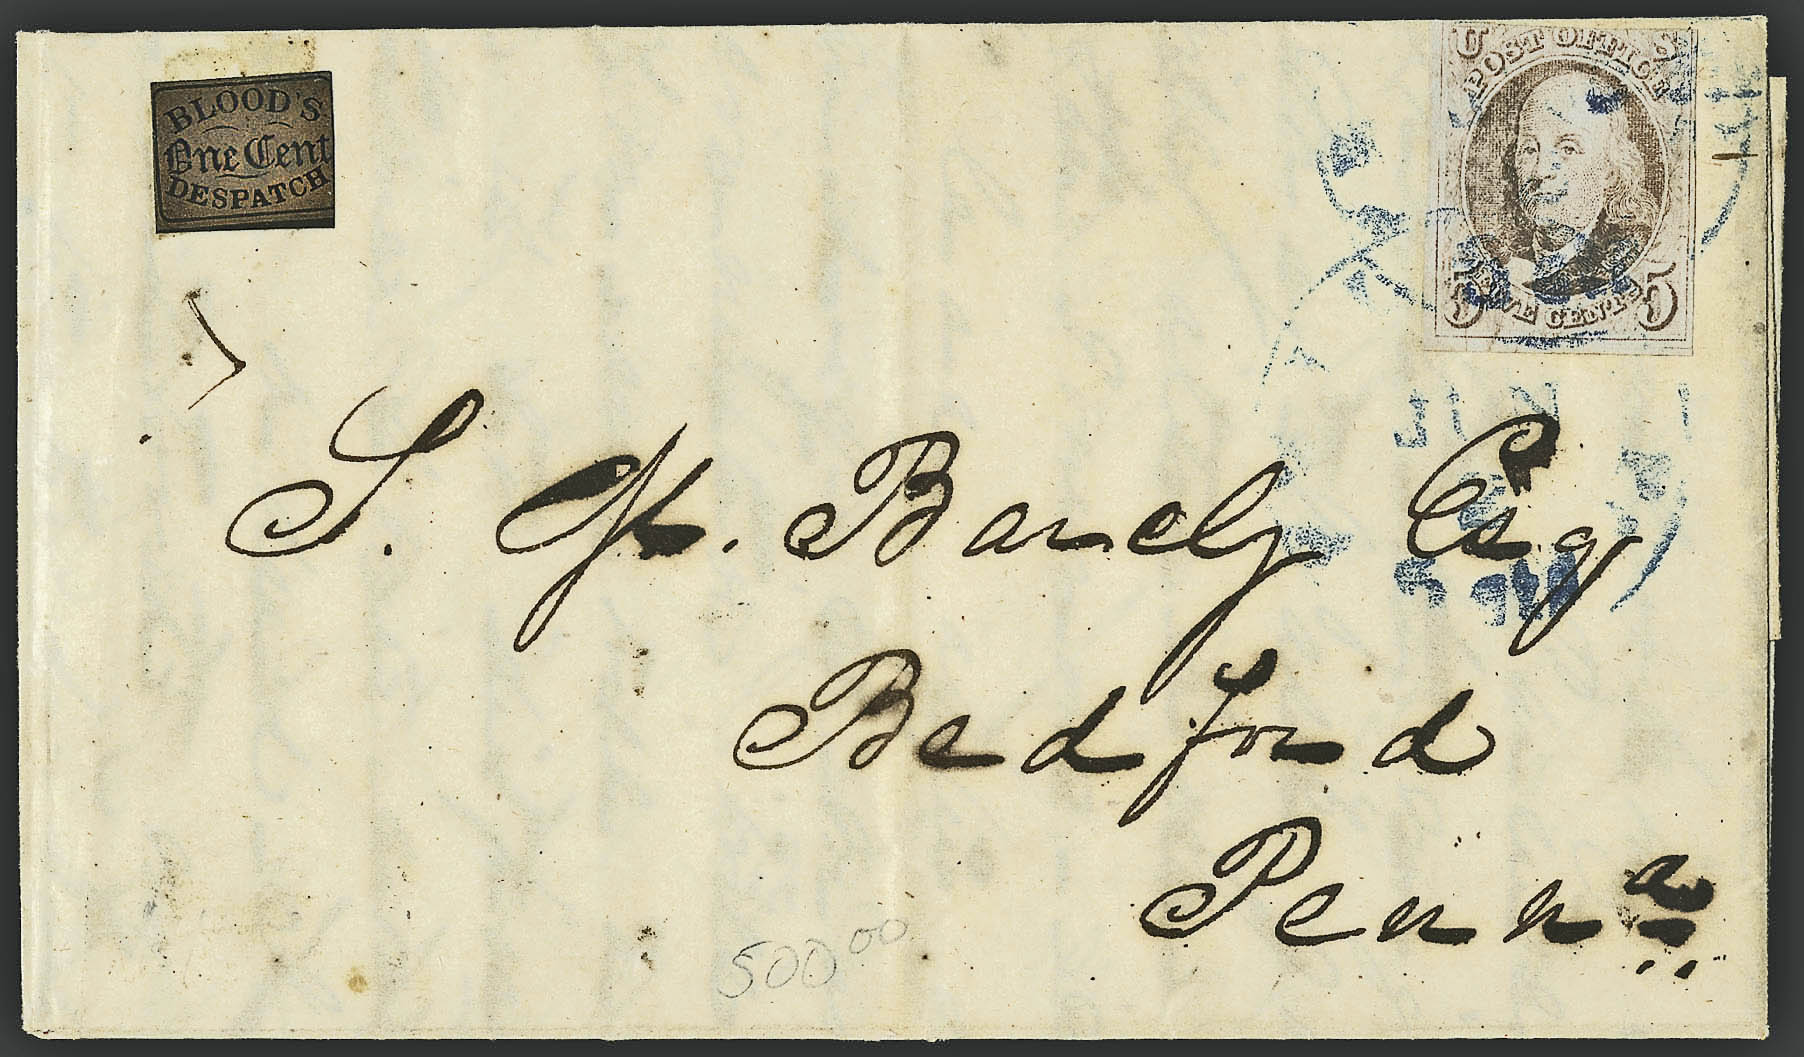 BLOOD'S
One Cent
DESPATCH
U S
POST OFFICE
5 FIVE CENTS 5
S. M. Barcly Esq
Bedford
Penna
500 00